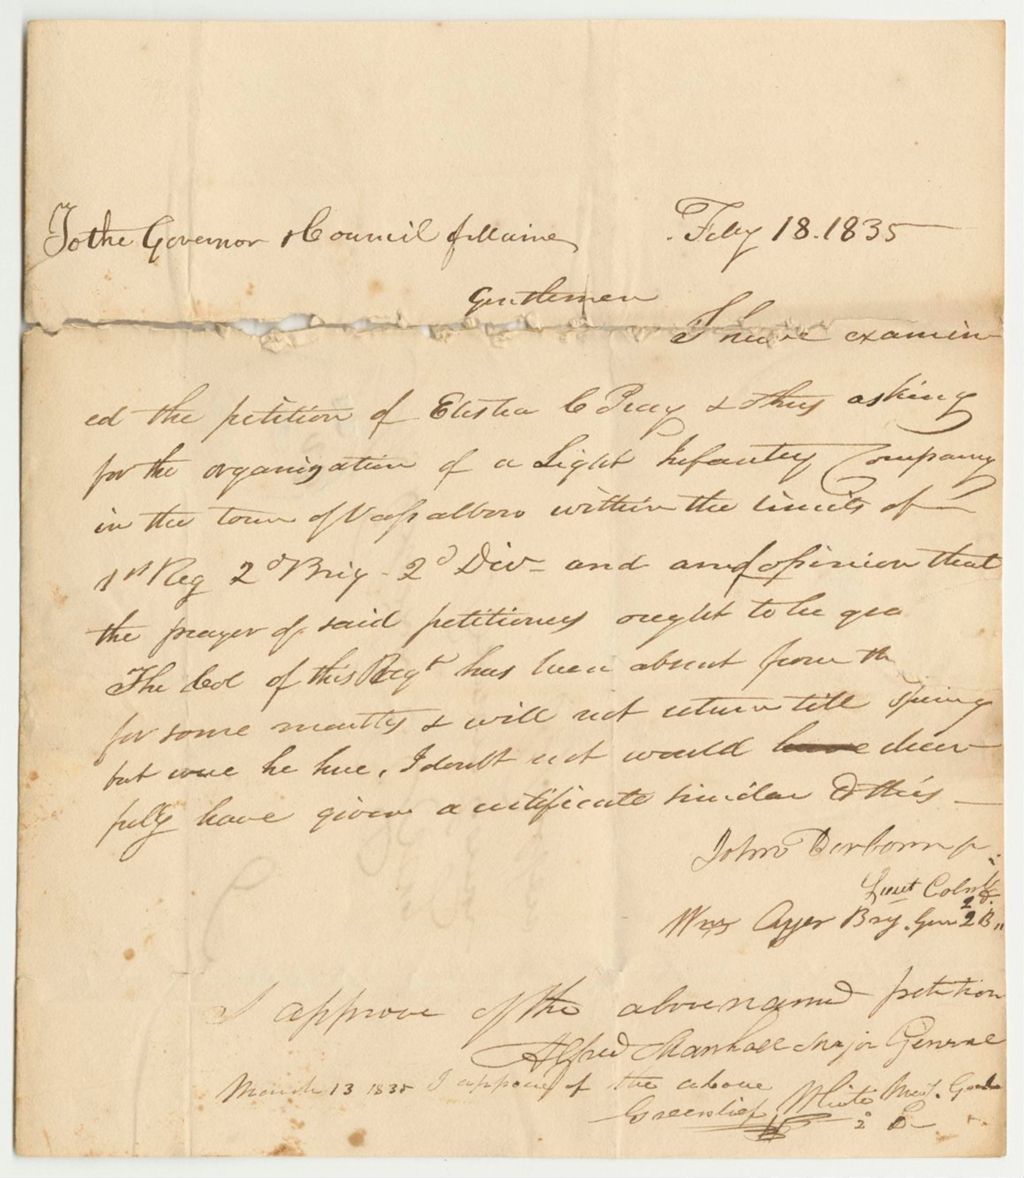 To the Governor & Council of Maine
Feby 18. 1835
Gentlemen
I have examin
ed the petition of Elisha C Pray & others asking
for the organization of a Light Infantry Company
in the town of Vassalboro within the limits of
1st Reg 2d Brig - 2d Div - and am of opinion that
the prayer of said petitioners ought to be gra
The Col of this Regt has been absent from th
for some months & will not return till spring
but were he here, I doubt not would have cheer
fully have given a certificate similar to this -
John Dearborn jr
Lieut Colo
Wm Ayer Brig. Gen 2 B"
I approve of the above named petition
Alfred Marshall Major General
March 13 1835 I approve of the above
Greenlief White Maj. Gen
2 D